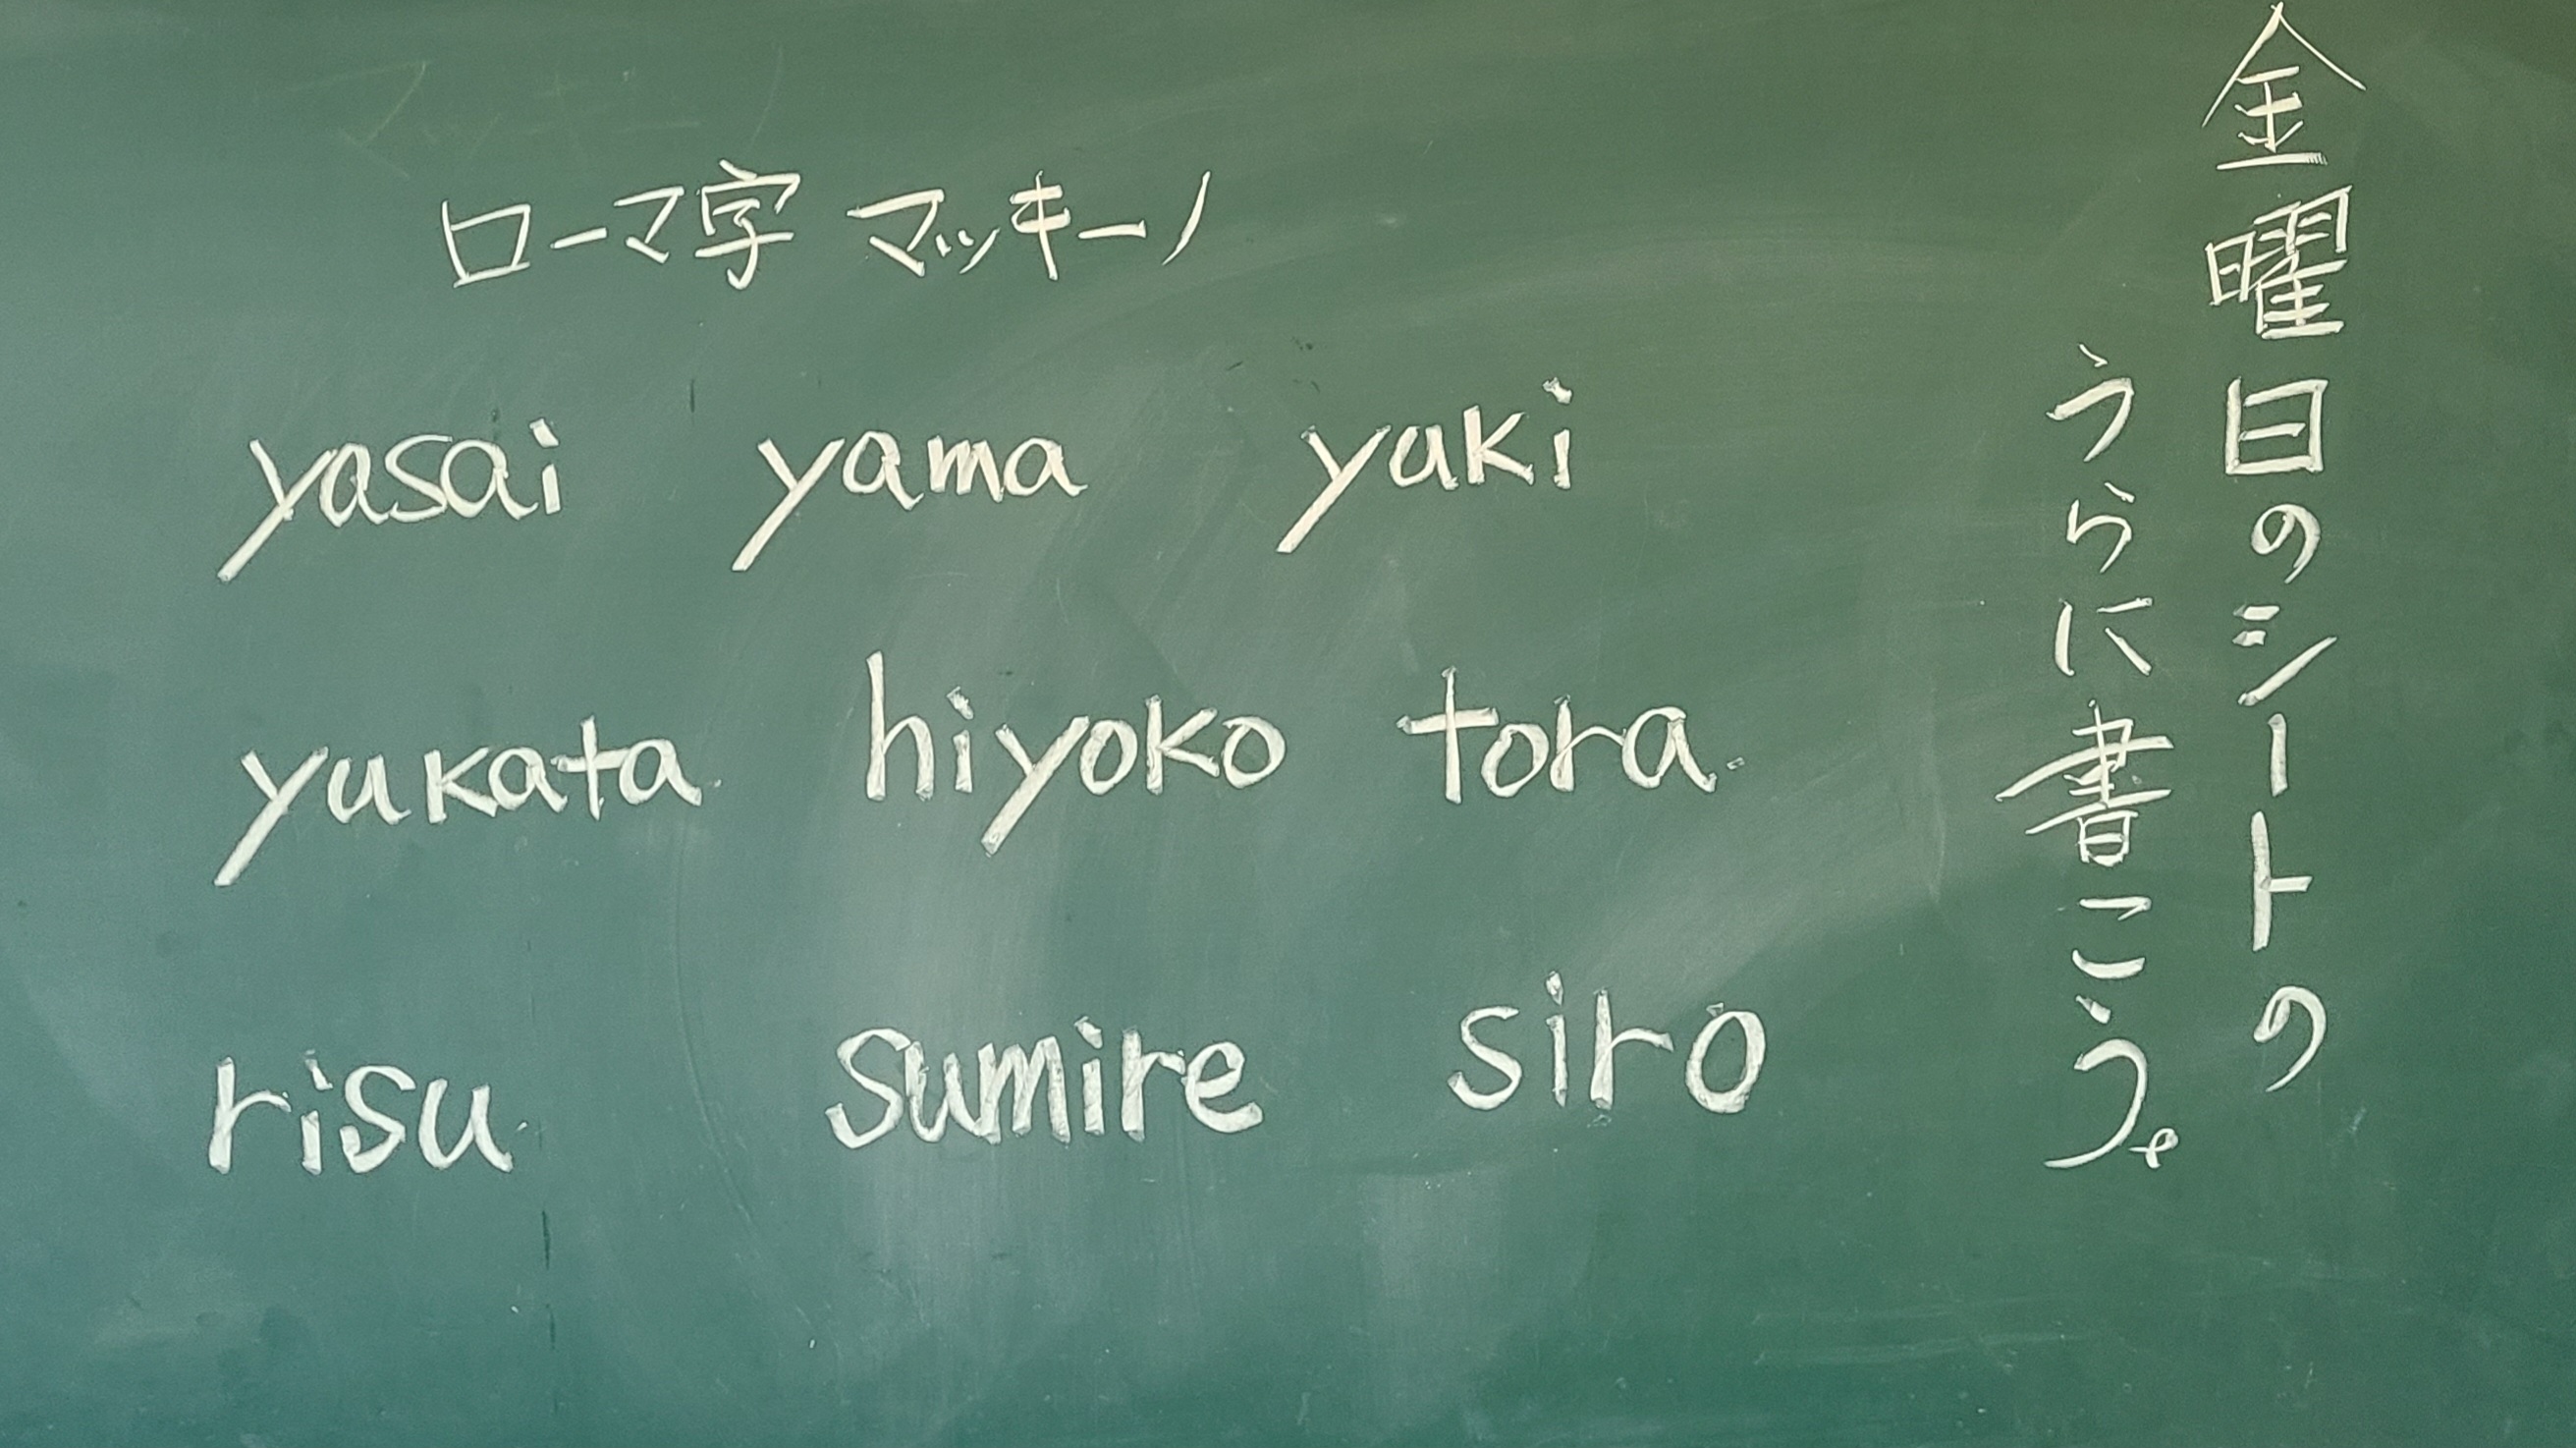 金曜日のシートの
うらに書こう。
ローマ字 マッキーノ
yasai yama yuki
yukata hiyoko tora
risu sumire siro